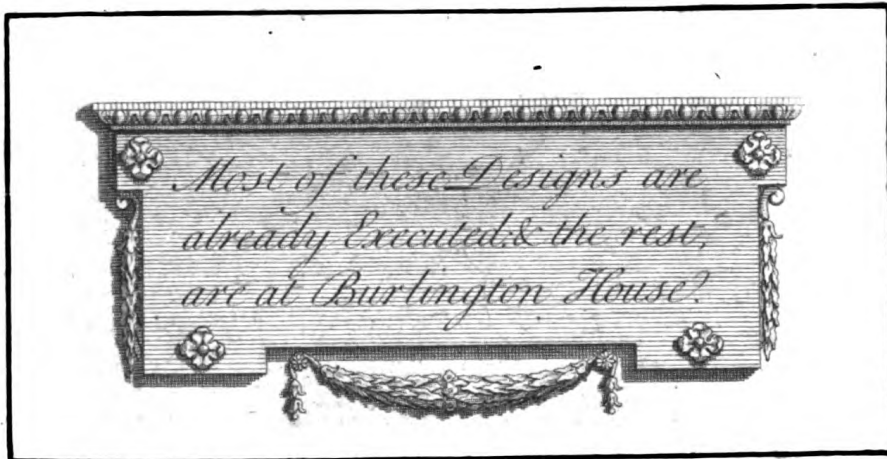 Most of these Designs are
already Executed, & the rest,
are at Burlington House.